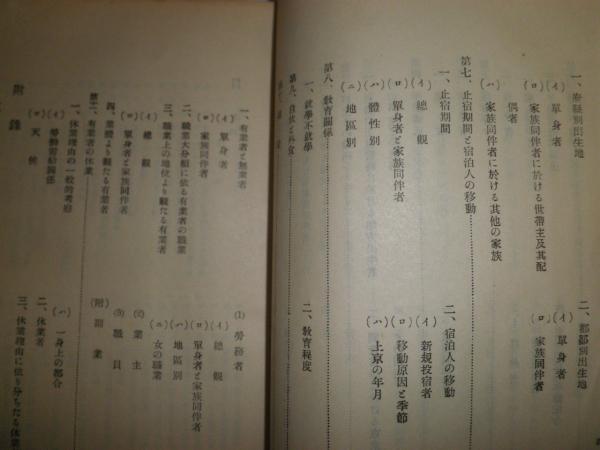 一、府縣別出生地
(イ) 單身者
(ロ) 家族同伴者に於ける世帶主及其配
偶者
(ハ) 家族同伴者に於ける其他の家族
二、郡部別出生地
(イ) 單身者
(ロ) 家族同伴者
第七、止宿期間と宿泊人の移動
一、止宿期間
(イ) 總觀
(ロ) 單身者と家族同伴者
(ハ) 體性別
(ニ) 地區別
二、宿泊人の移動
(イ) 新規投宿者
(ロ) 移動原因と季節
(ハ) 上京の年月
第八、教育關係
一、就學不就學
二、教育程度
第九、
一、有業者と無業者
(イ) 單身者
(ロ) 家族同伴者
二、職業大分類に依る有業者の職業
三、職業上の地位より觀たる有業者
(イ) 總觀
(ロ) 單身者と家族同伴者
四、業體より觀たる有業者
(1) 勞務者
(イ) 總觀
(ロ) 單身者と家族同伴者
(ハ) 地區別
(ニ) 女の職業
(2) 業主
(3) 職員
(附) 副業
第二、有業者の休業
一、休業理由の一般的考察
(イ) 勞働需給關係
(ロ) 天候
(ハ) 一身上の都合
二、休業者
三、休業理由に依り分ちたる休業
附錄